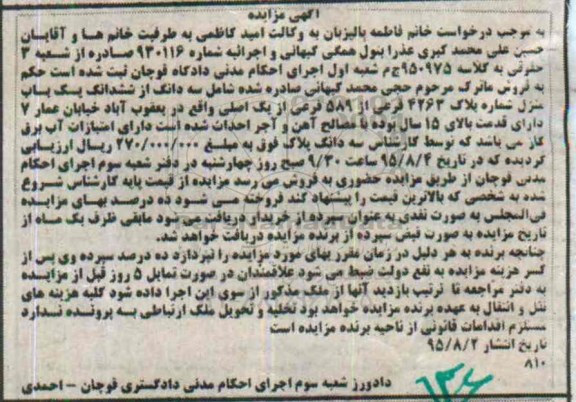 آگهی مزایده
به موجب درخواست خانم فاطمه پالیزبان به وکالت امید کاظمی به طرفیت خانم ها و آقایان
حسین علی محمد کبری عذرا بتول همگی کیهانی و اجرائیه شماره ۹۳۰۱۱۶ صادره از شعبه ۳
حقوقی به کلاسه ۹۵۰۹۷۵ج م شعبه اول اجرای احکام مدنی دادگاه قوچان ثبت شده است حکم
به فروش ماترک مرحوم حجی محمد کیهانی صادره شده شامل سه دانگ از ششدانگ یک باب
منزل شماره پلاک ۴۲۶۳ فرعی از ۵۸۹ فرعی از یک اصلی واقع در یعقوب آباد خیابان عمار ۷
دارای قدمت بالای ۱۵ سال بوده و مصالح آهن و آجر احداث شده است دارای امتیازات آب برق
گاز می باشد که توسط کارشناس سه دانگ پلاک فوق به مبلغ ۲۷۰/۰۰۰/۰۰۰ ریال ارزیابی
گردیده که در تاریخ ۹۵/۸/۴ ساعت ۹/۳۰ صبح روز چهارشنبه در دفتر شعبه سوم اجرای احکام
مدنی قوچان از طریق مزایده حضوری به فروش می رسد مزایده از قیمت پایه کارشناس شروع
شده به شخصی که بالاترین قیمت را پیشنهاد کند فروخته می شود ده درصد بهای مزایده
فی المجلس به صورت نقدی به عنوان سپرده از خریدار دریافت می شود مابقی ظرف یک ماه از
تاریخ مزایده به صورت قبض سپرده از برنده مزایده دریافت خواهد شد.
چنانچه برنده به هر دلیل در زمان مقرر بهای مورد مزایده را نپردازد ده درصد سپرده وی پس از
کسر هزینه مزایده به نفع دولت ضبط می شود علاقمندان در صورت تمایل ۵ روز قبل از مزایده
به دفتر مراجعه تا ترتیب بازدید آنها از ملک مذکور از سوی این اجرا داده شود کلیه هزینه های
نقل و انتقال به عهده برنده مزایده خواهد بود تخلیه و تحویل ملک ارتباطی به پرونده ندارد
مستلزم اقدامات قانونی از ناحیه برنده مزایده است
تاریخ انتشار ۹۵/۸/۲
۸۱۰
دادورز شعبه سوم اجرای احکام مدنی دادگستری قوچان - احمدی